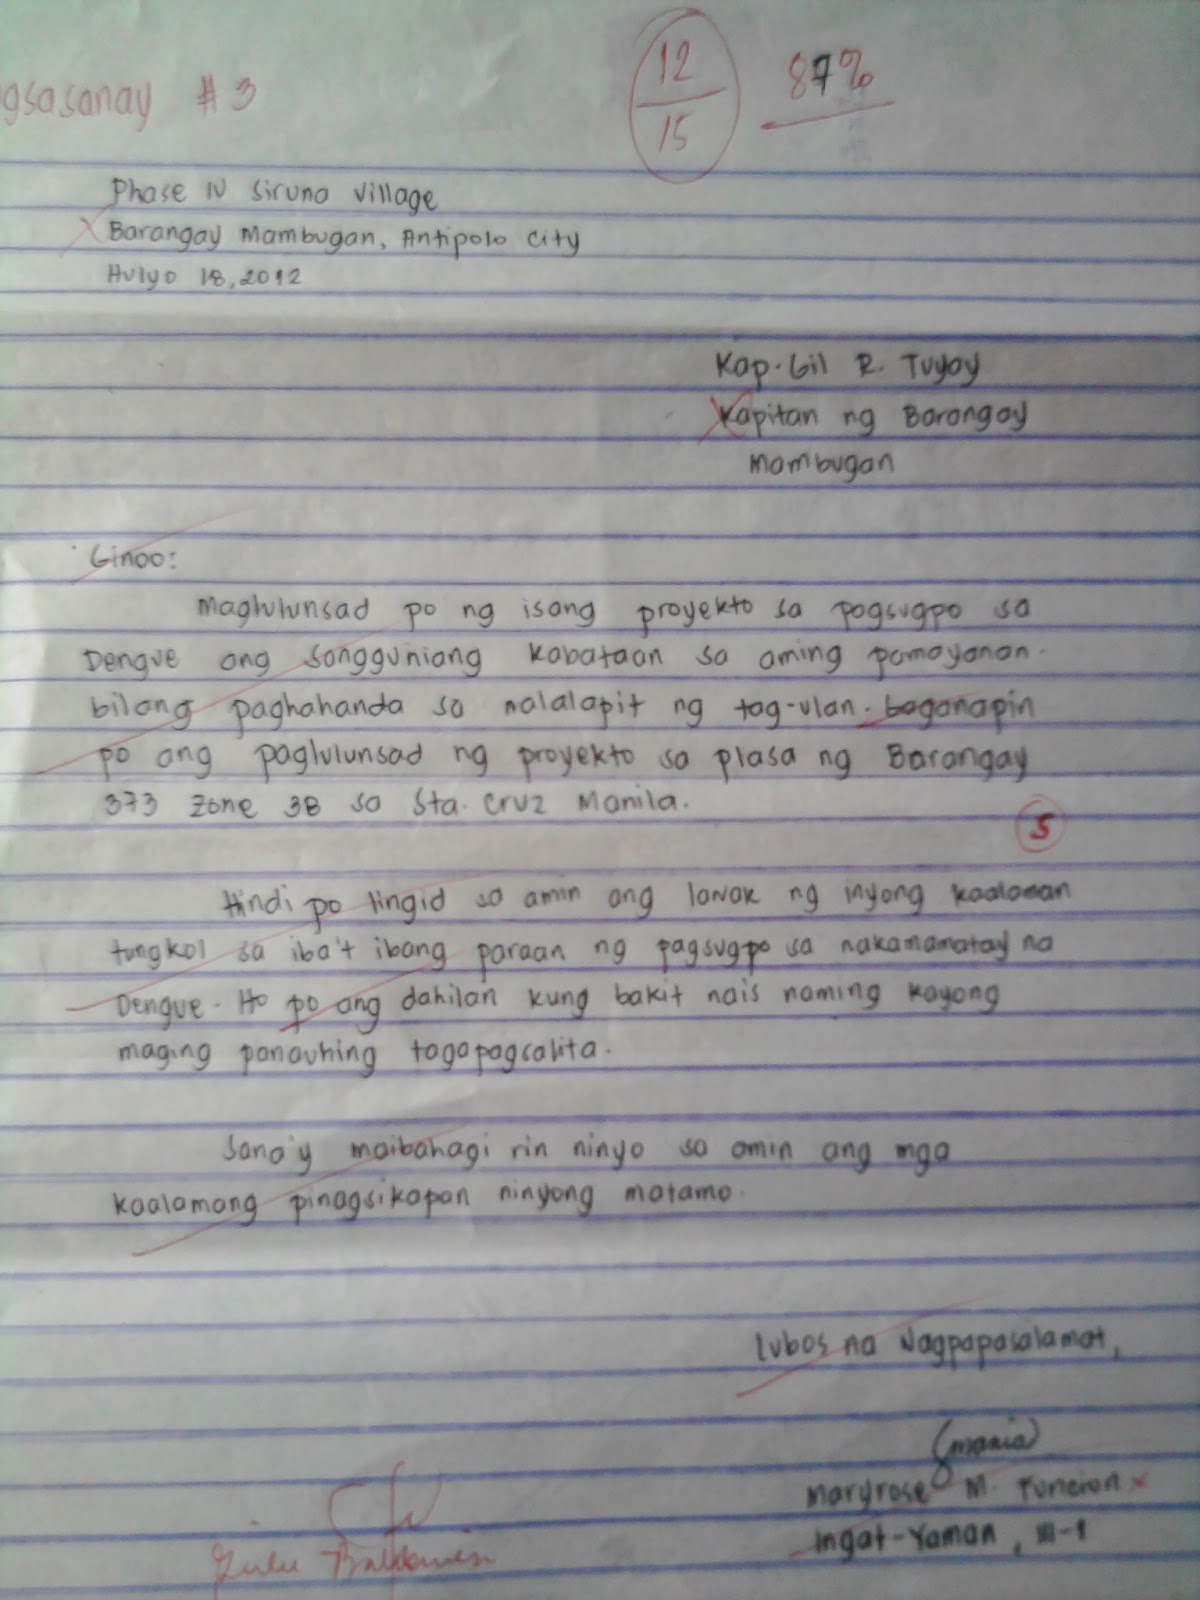 gsasanay # 3
12
15
87%
Phase IV Siruna Village
Barangay Mambugan, Antipolo City
Hulyo 18, 2012
Kap. Gil R. Tuyay
Kapitan ng Barangay
Mambugan
Ginoo:
Maglulunsad po ng isang proyekto sa pagsugpo sa
Dengue ang sangguniang kabataan sa aming pamayanan.
bilang paghahanda sa nalalapit ng tag-ulan. gaganapin
po ang paglulunsad ng proyekto sa plasa ng Barangay
373 Zone 38 sa Sta. Cruz Manila.
5
Hindi po lingid sa amin ang lawak ng inyong kaalaman
tungkol sa iba't ibang paraan ng pagsugpo sa nakamamatay na
Dengue. Ito po ang dahilan kung bakit nais naming kayong
maging panauhing tagapagsalita.
Sana'y maibahagi rin ninyo sa amin ang mga
kaalamang pinagsikapan ninyong matamo.
Lubos na Nagpapasalamat,
Maryrose M.
Ingat-Yaman, III-1